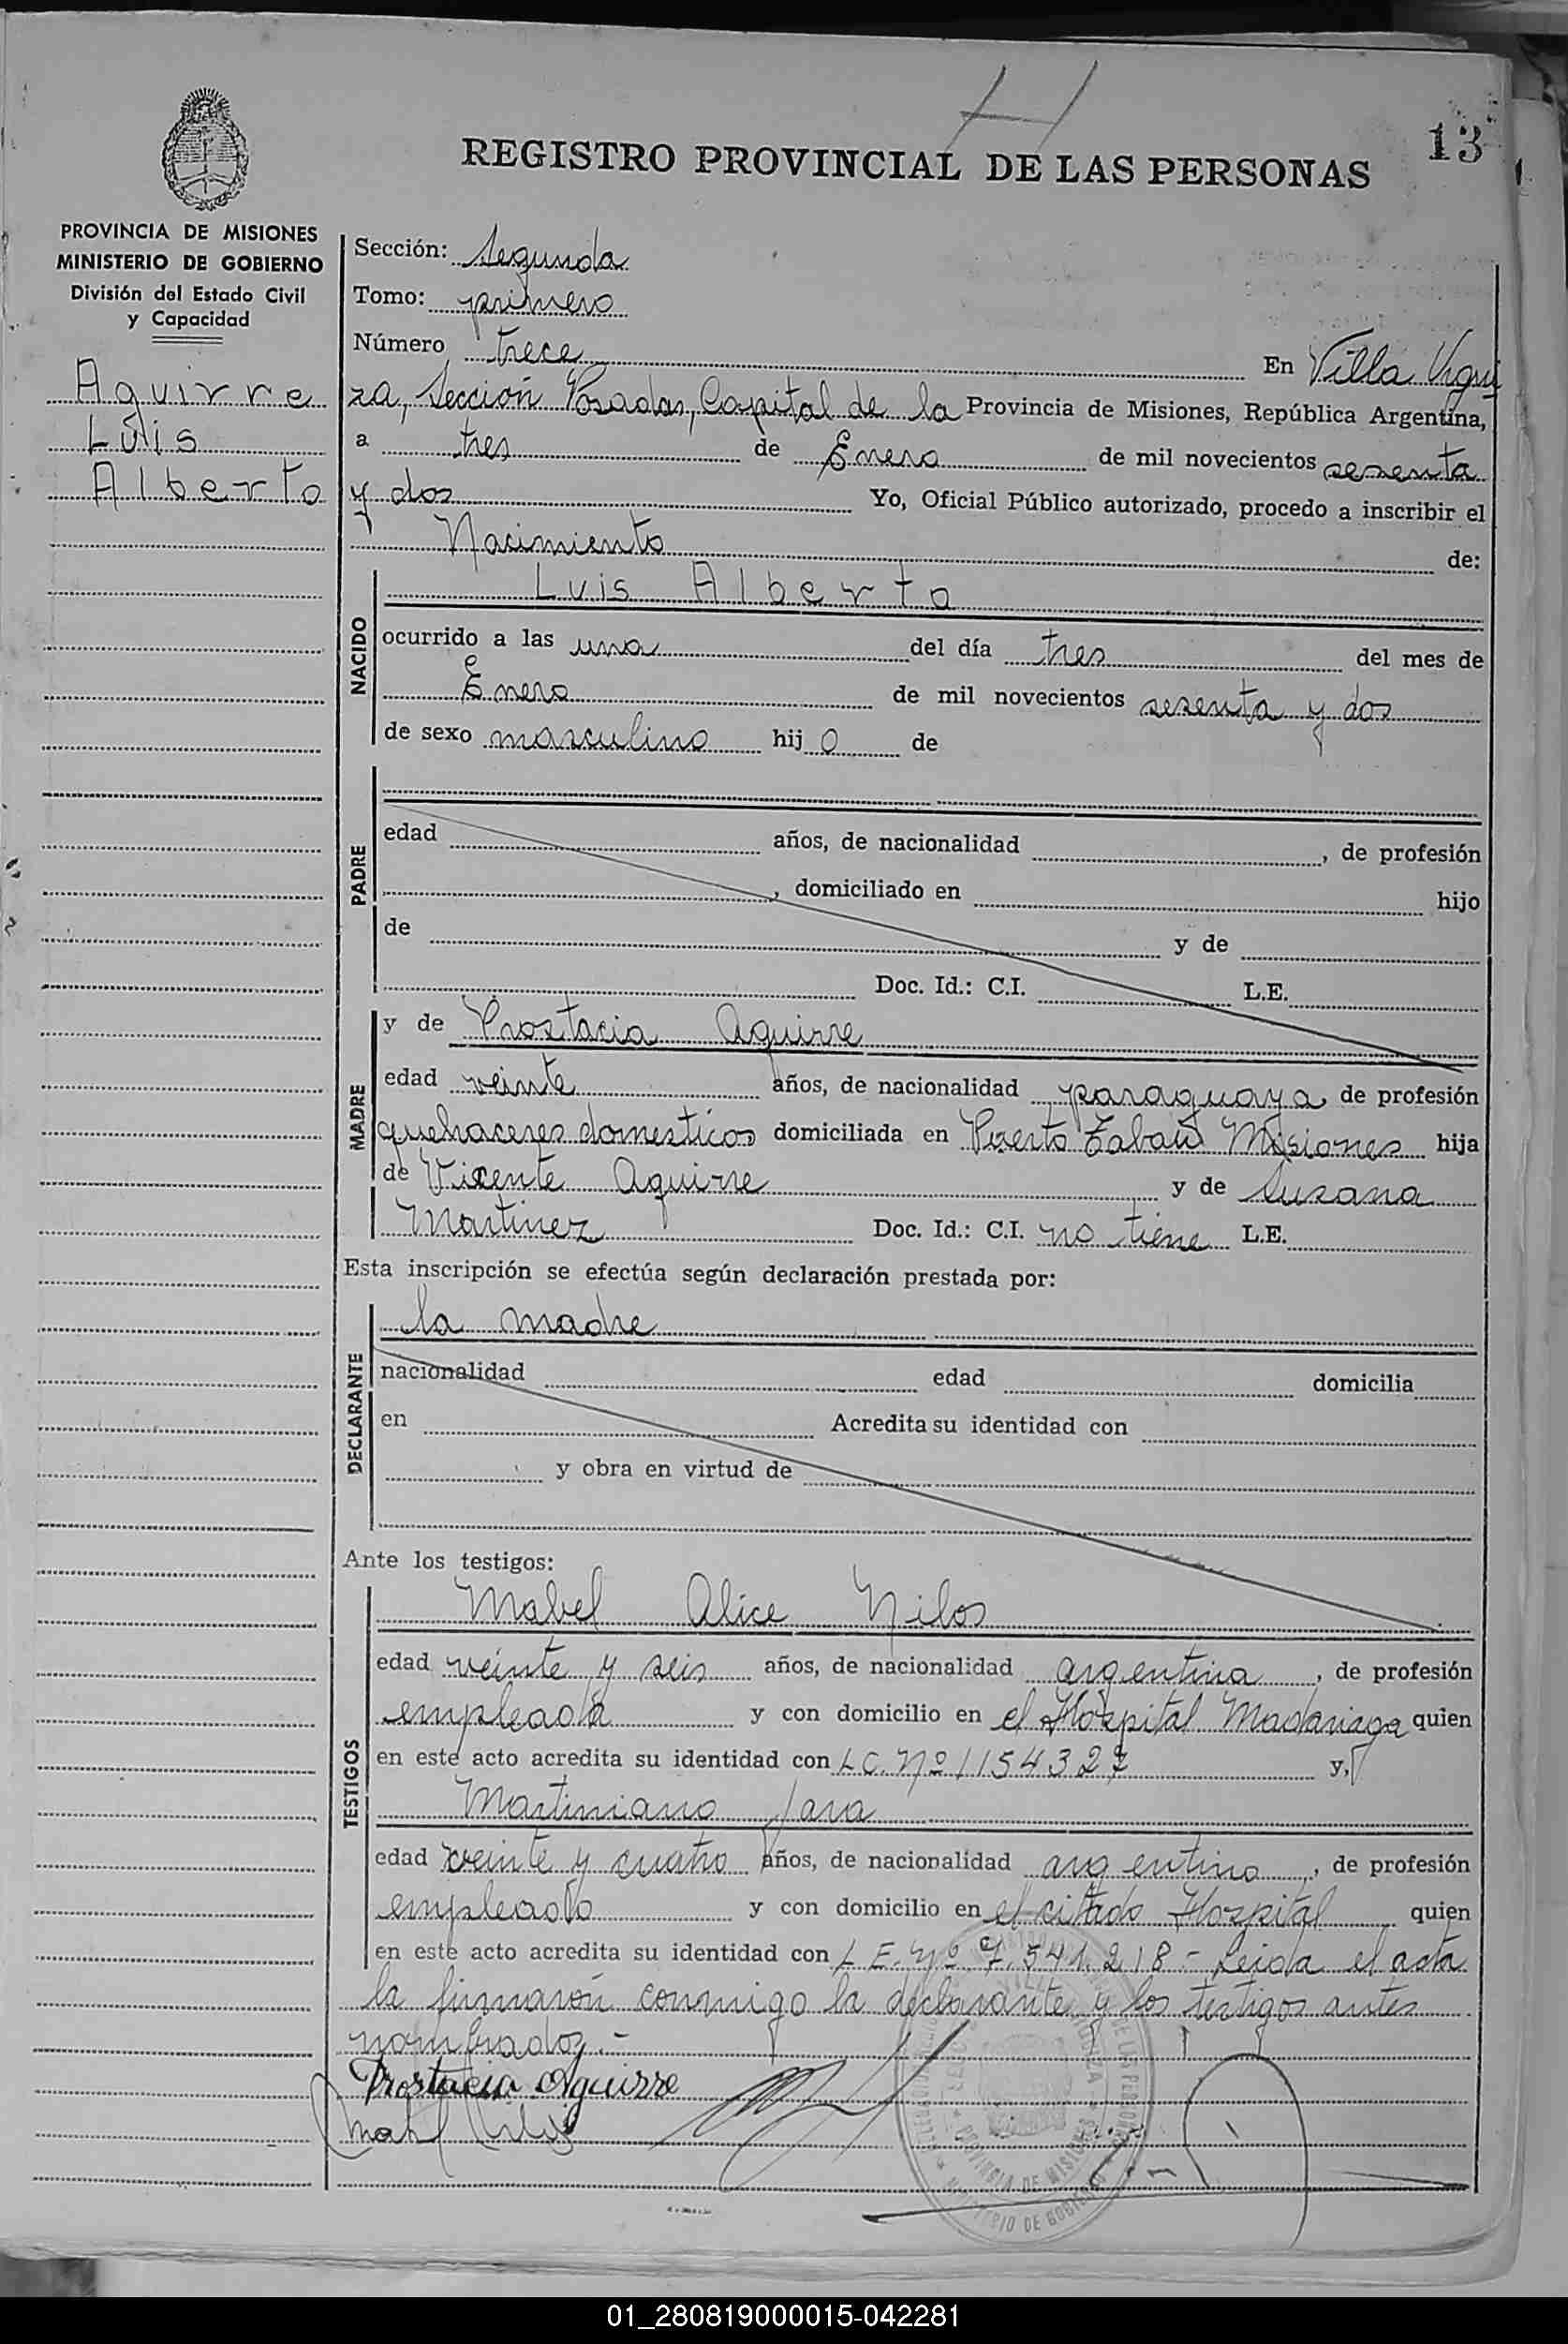 13
REGISTRO PROVINCIAL DE LAS PERSONAS
PROVINCIA DE MISIONES
MINISTERIO DE GOBIERNO
División del Estado Civil
y Capacidad
Aguirre
Luis
Alberto
Sección: Segunda
Tomo: primero
Número trece En Villa Urqui
za, Sección Posadas, Capital de la Provincia de Misiones, República Argentina,
a tres de Enero de mil novecientos sesenta
y dos Yo, Oficial Público autorizado, procedo a inscribir el
Nacimiento de:
NACIDO
Luis Alberto
ocurrido a las una del día tres del mes de
Enero de mil novecientos sesenta y dos
de sexo masculino hij o de
PADRE
edad años, de nacionalidad , de profesión
, domiciliado en hijo
de y de
Doc. Id.: C.I. L.E.
MADRE
y de Prostacia Aguirre
edad veinte años, de nacionalidad paraguaya, de profesión
quehaceres domesticos domiciliada en Puerto Misiones hija
de Vicente Aguirre y de Susana
Martinez Doc. Id.: C.I. no tiene L.E.
Esta inscripción se efectúa según declaración prestada por:
DECLARANTE
la madre
nacionalidad edad domicilia
en Acredita su identidad con
y obra en virtud de
Ante los testigos:
TESTIGOS
Mabel Alice Nilos
edad veinte y seis años, de nacionalidad argentina, de profesión
empleada y con domicilio en el Hospital Madariaga quien
en este acto acredita su identidad con L C. Nº 1154327 y,
Martiniano Jara
edad veinte y cuatro años, de nacionalidad argentino, de profesión
empleado y con domicilio en el citado Hospital quien
en este acto acredita su identidad con L E. Nº 7.541.218.- Leida el acta
la firmarón conmigo la declarante y los testigos antes
nombrados.-
Prostacia Aguirre
PROVINCIA DE MISIONES
MINISTERIO DE GOBIERNO
01_280819000015-042281